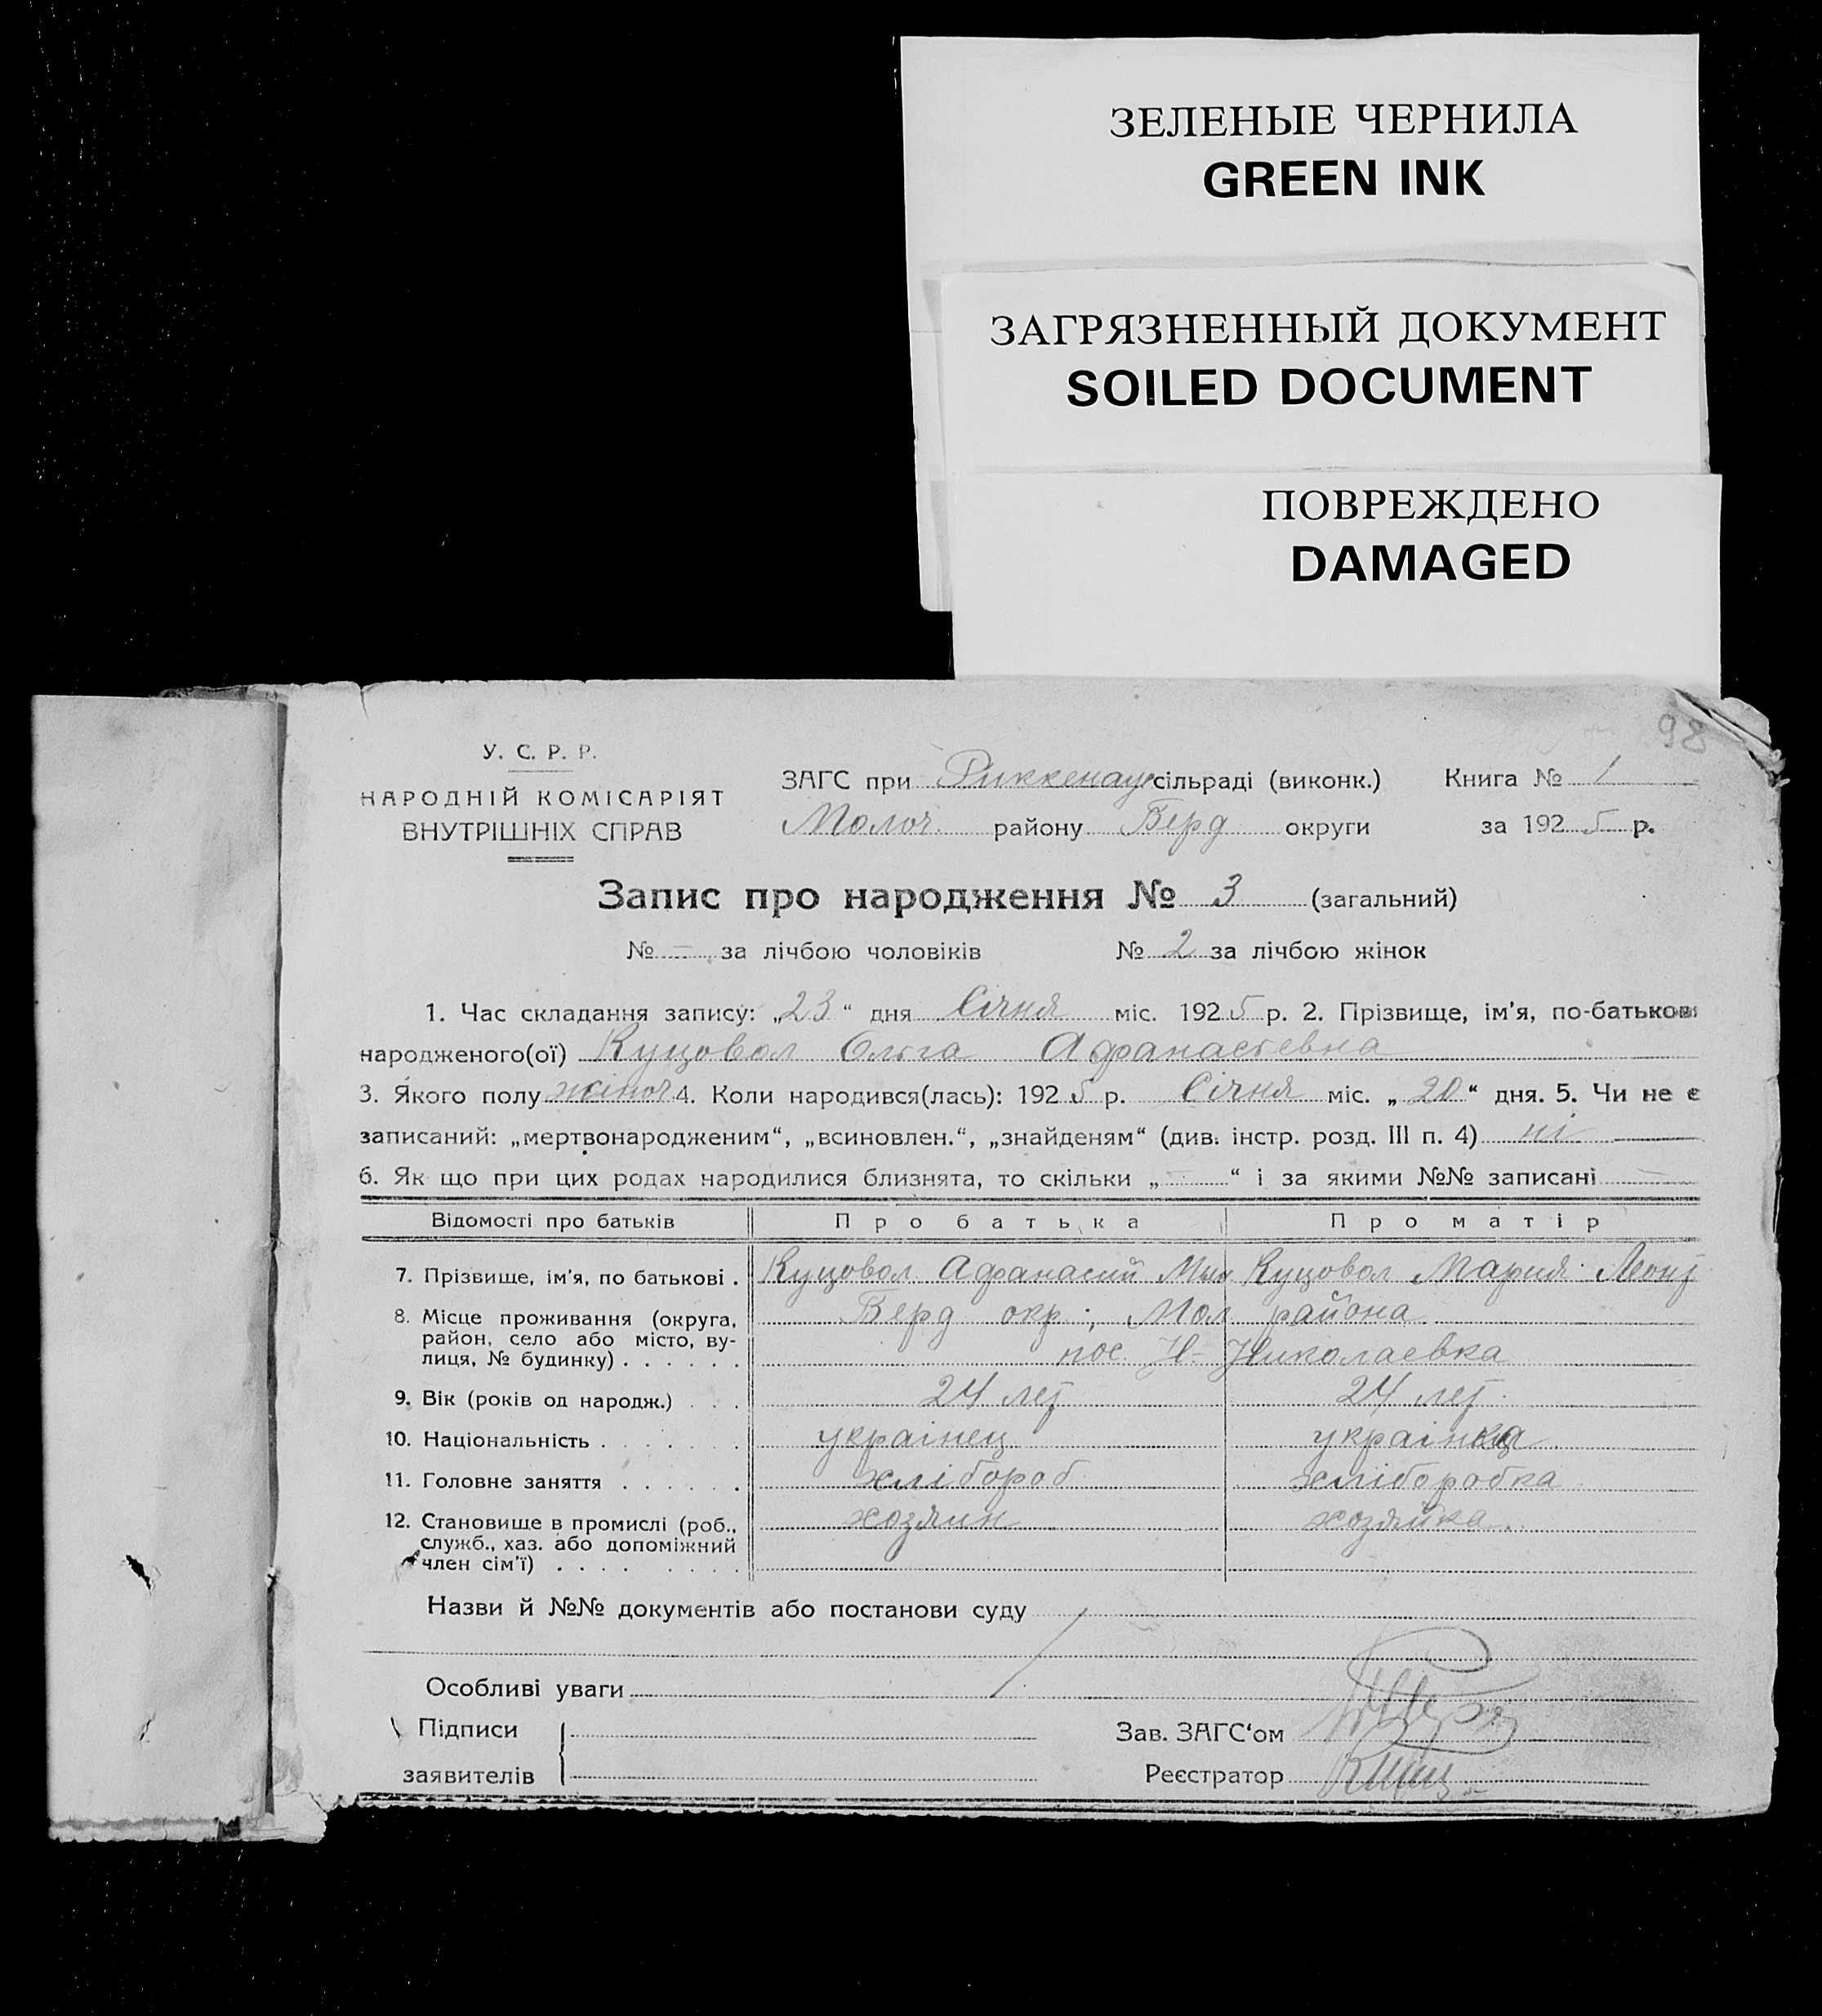 ЗЕЛЕНЫЕ ЧЕРНИЛА
GREEN INK
ЗАГРЯЗНЕННЫЙ ДОКУМЕНТ
SOILED DOCUMENT
ПОВРЕЖДЕНО
DAMAGED
98
У. С. Р. Р.
НАРОДНІЙ КОМІСАРІЯТ
ВНУТРІШНІХ СПРАВ
ЗАГС при Риккенау сільраді (виконк.) Книга № 1
Молоч. району Берд округи за 1925 р.
Запис про народження № 3 (загальний)
№ — за лічбою чоловіків № 2 за лічбою жінок
1. Час складання запису: „23“ дня Січня міс. 1925 р. 2. Прізвище, ім'я, по-батькові
народженого(ої) Куцовол Ольга Афанасьевна
3. Якого полу жіноч 4. Коли народився(лась): 1925 р. Січня міс. „20“ дня. 5. Чи не є
записаний: „мертвонародженим“, „всиновлен.“, „знайденям“ (див. інстр. розд. III п. 4) ні
6. Як що при цих родах народилися близнята, то скільки „—“ і за якими №№ записані —
Відомості про батьків Про батька Про матір
7. Прізвище, ім'я, по батькові . Куцовол Афанасий Куцовол Мария
8. Місце проживання (округа, район, село або місто, ву-лиця, № будинку) . . . . . . Берд окр; Мол района
пос. Н-Николаевка
9. Вік (років од народж.) . . . 24 лет 24 лет.
10. Національність . . . . . . . українец українка
11. Головне заняття . . . . . . хлібороб хліборобка
12. Становище в промислі (роб., служб., хаз. або допоміжний член сім'ї) . . . . . . . . хозяин хозяйка.
Назви й №№ документів або постанови суду
Особливі уваги
Підписи
заявителів
Зав. ЗАГС'ом
Реєстратор